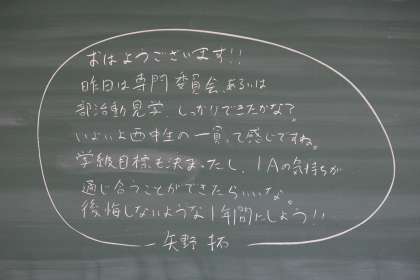 おはようございます!!
昨日は専門委員会、あるいは
部活動見学、しっかりできたかな?
いよいよ西中生の一員、って感じですね。
学級目標も決まったし、1Aの気持ちが
通じ合うことができたらいいな。
後悔しないような1年間にしよう!!
矢野 拓